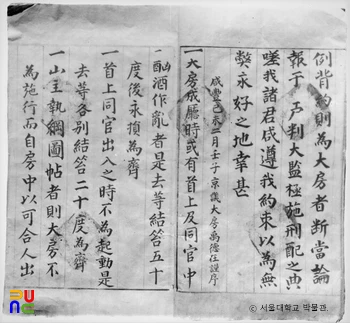 例背約則爲大房者斷當論
報于 戶判大監極施刑配之典
嗟我諸君咸遵我約束以爲無
獘永好之地幸甚
咸豊己未二月壬子京議大房禹德任謹序
一大房成廳時或有首上及同官中
酗酒作亂者是去等結笞五十
度後永損爲齊
一首上同官出入之時不爲起動是
去等各別結笞二十度爲齊
一山主執綱圖帖者則大房不
爲施行而自房中以可合人出
© 서울대학교 박물관